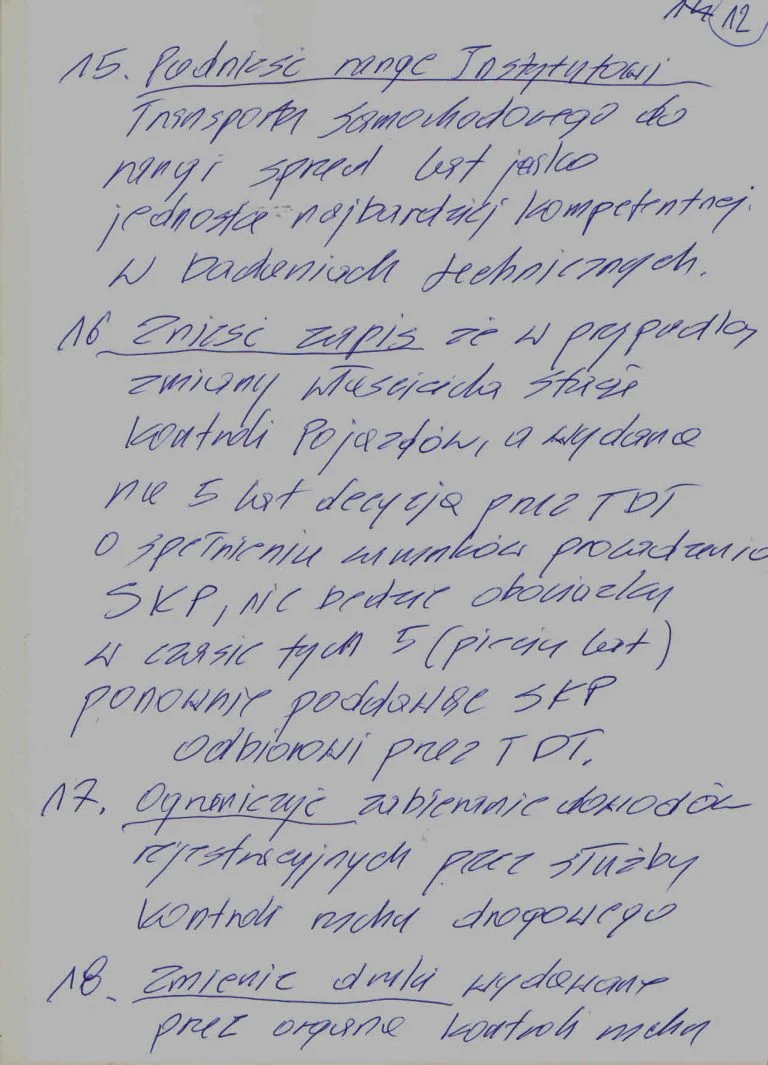 14 12
15. Podnieść rangę Instytutowi
Transportu Samochodowego do
rangi sprzed lat jako
jednostce najbardziej kompetentnej.
w badaniach technicznych.
16 Znieść zapis że w przypadku
zmiany właściciela Stacje
Kontroli Pojazdów, a wydana
na 5 lat decyzja przez TDT
o spełnieniu warunków prowadzenia
SKP, nie będzie obowiązku
w czasie tych 5 (pięciu lat)
ponownie poddawać SKP
odbiorowi przez TDT.
17. Ograniczyć zabieranie dowodów
rejestracyjnych przez służby
kontroli ruchu drogowego
18. Zmienić druki wydawane
przez organa kontroli ruchu